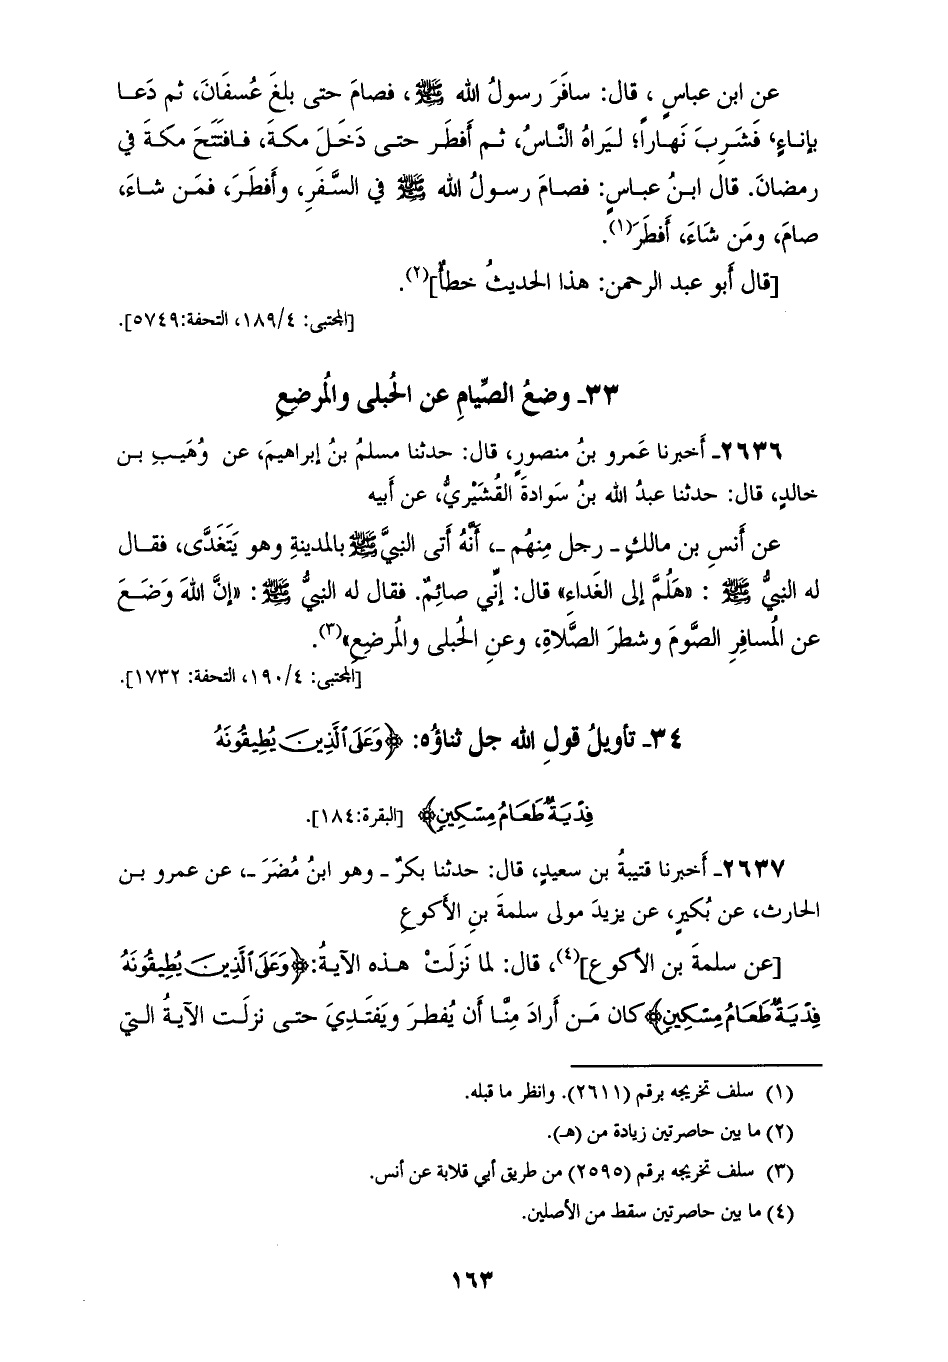 عن ابن عباسٍ ، قال: سافَرَ رسولُ الله ﷺ، فصامَ حتى بلغَ عُسفَانَ، ثم دَعـا
بإناءٍ، فَشَرِبَ نَهاراً؛ لِيَراهُ النَّاسُ، ثـم أَفطَر حتـى دَخَلَ مكـةَ، فـافتَتَحَ مكـةَ في
رمضانَ. قال ابـنُ عبـاسٍ: فصامَ رسـولُ الله ﷺ في السَّفَرِ، وأَفطَرَ، فمَـن شـاءَ،
صامَ، ومَن شَاءَ، أَفطَرَ(١).
[قال أَبو عبد الرحمن: هذا الحديثُ خطأٌ](٢).
[المجتبى: ١٨٩/٤، التحفة:٥٧٤٩].
٣٣ـ وضعُ الصِّيامِ عن الحُبلى والمُرضِعِ
٢٦٣٦ـ أَخبرنا عَمرو بنُ منصورٍ، قال: حدثنا مسلمُ بنُ إبراهيمَ، عن وُهَيبِ بـن
خالدٍ، قال: حدثنا عبدُ الله بنُ سَوادةَ القُشَيْريُّ، عن أَبيه
عن أَنسِ بن مالكٍ ـ رجلٍ مِنهُم ـ، أَنَّهُ أَتى النبيَّ ﷺ بالمدينةِ وهو يَتَغَدَّى، فقـال
له النبيُّ ﷺ : «هَلُمَّ إلى الغَداءِ» قال: إنِّي صائِمٌ. فقال له النبيُّ ﷺ : «إنَّ اللهَ وَضَـعَ
عن المُسافِرِ الصَّومَ وشطرَ الصَّلاةِ، وعنِ الحُبلى والمُرضِعِ»(٣).
[المجتبى: ١٩٠/٤، التحفة: ١٧٣٢].
٣٤ـ تأويلُ قولِ الله جل ثناؤه: ﴿وَعَلَى ٱلَّذِينَ يُطِيقُونَهُ
فِدْيَةٌ طَعَامُ مِسْكِينٍ﴾ [البقرة:١٨٤].
٢٦٣٧ـ أَخبرنا قتيبةُ بن سعيدٍ، قال: حدثنا بكرٌ ـ وهو ابنُ مُضَرَ ـ، عن عمرو بـن
الحارث، عن بُكيرٍ، عن يزيدَ مولى سلمةَ بنِ الأَكوعِ
[عن سلمةَ بن الأكوع](٤)، قال: لما نَزلَتْ هـذه الآيـةُ:﴿وَعَلَى ٱلَّذِينَ يُطِيقُونَهُ
فِدْيَةٌ طَعَامُ مِسْكِينٍ﴾ كان مَـن أَرادَ مِنَّـا أَن يُفطـرَ ويَفتَـدِيَ حتـى نزلَـت الآيـةُ الـتي
(١) سلف تخريجه برقم (٢٦١١). وانظر ما قبله.
(٢) ما بين حاصرتين زيادة من (هـ).
(٣) سلف تخريجه برقم (٢٥٩٥) من طريق أبي قلابة عن أنس.
(٤) ما بين حاصرتين سقط من الأصلين.
١٦٣